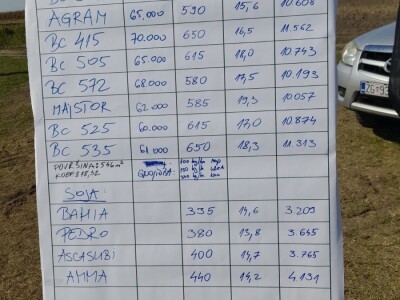 AGRAM 65.000 590 15,6 10.608
BC 415 70.000 650 16,5 11.562
BC 505 65.000 615 18,0 10.743
BC 572 68.000 580 17,5 10.193
MAJSTOR 62.000 585 19,3 10.057
BC 525 60.000 615 17,0 10.874
BC 535 61.000 650 18,3 11.313
POVRŠINA: 546 m²
GNOJIDBA:
SOJA:
BAHIA 335 14,6 3.209
PEDRO 380 13,8 3.645
ASCASUBI 400 14,7 3.765
AMMA 440 14,2 4.131